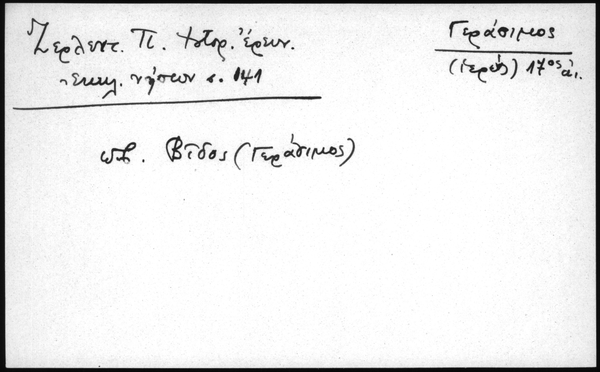 Ζερλεντ. Π. Ἱστορ. Ἔρευν.
Ἐκκλ. νήσων σ. 141
Γεράσιμος
(ἱερεὺς) 17ος αἰ.
Βίδος (Γεράσιμος)